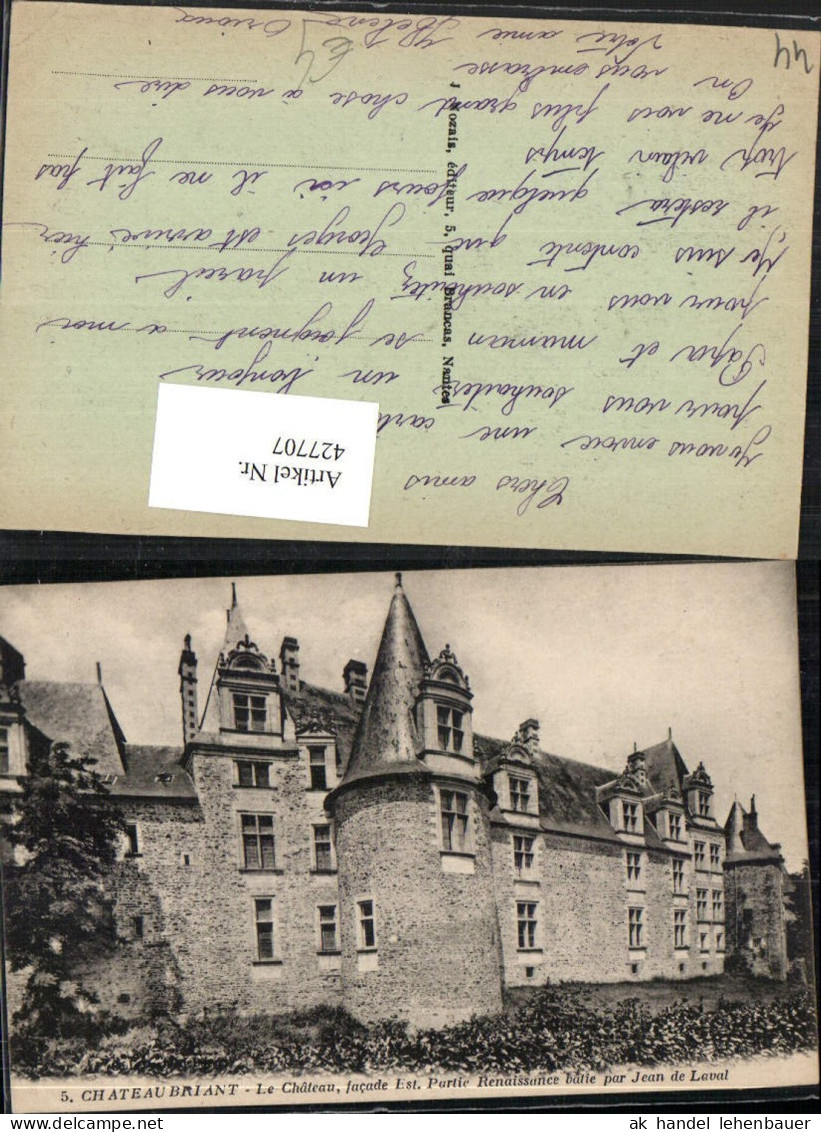 Chers amis
Je vous envoie une carte
pour vous souhaiter un bonjour
Papa et maman se joignent a moi
pour vous en souhaitez un pareil
Je suis contente que Georges est arrivé hier
il restera quelque jours ici il me fait pas
trop vilain temps
Je ne vois plus grand chose a vous dire
On vous embrasse
Votre amie Helene Orioux
44
J Nozais, éditeur, 5, quai Brancas, Nantes
Artikel Nr.
427707
5. CHATEAUBRIANT - Le Château, façade Est. Partie Renaissance bâtie par Jean de Laval
ak handel lehenbauer